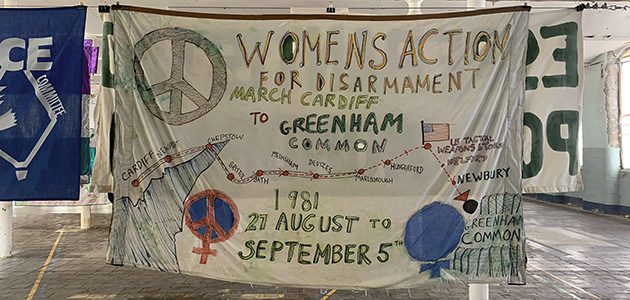 CE
COMMITTEE
WOMENS ACTION
FOR DISARMAMENT
MARCH CARDIFF
TO GREENHAM
COMMON
CARDIFF
NEWPORT
CHEPSTOW
BRISTOL
BATH
MELKSHAM
DEVIZES
MARLBOROUGH
HUNGERFORD
US TACTICAL
WEAPONS STORE
WELFORD
NEWBURY
GREENHAM
COMMON
1981
27 AUGUST TO
SEPTEMBER 5TH